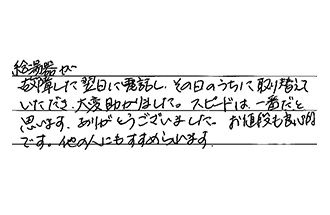 給湯器が
故障した翌日に電話し、その日のうちに取り替えて
いただき、大変助かりました。スピードは、一番だと
思います。ありがとうございました。お値段も良い的
です。他の人にもすすめられます。